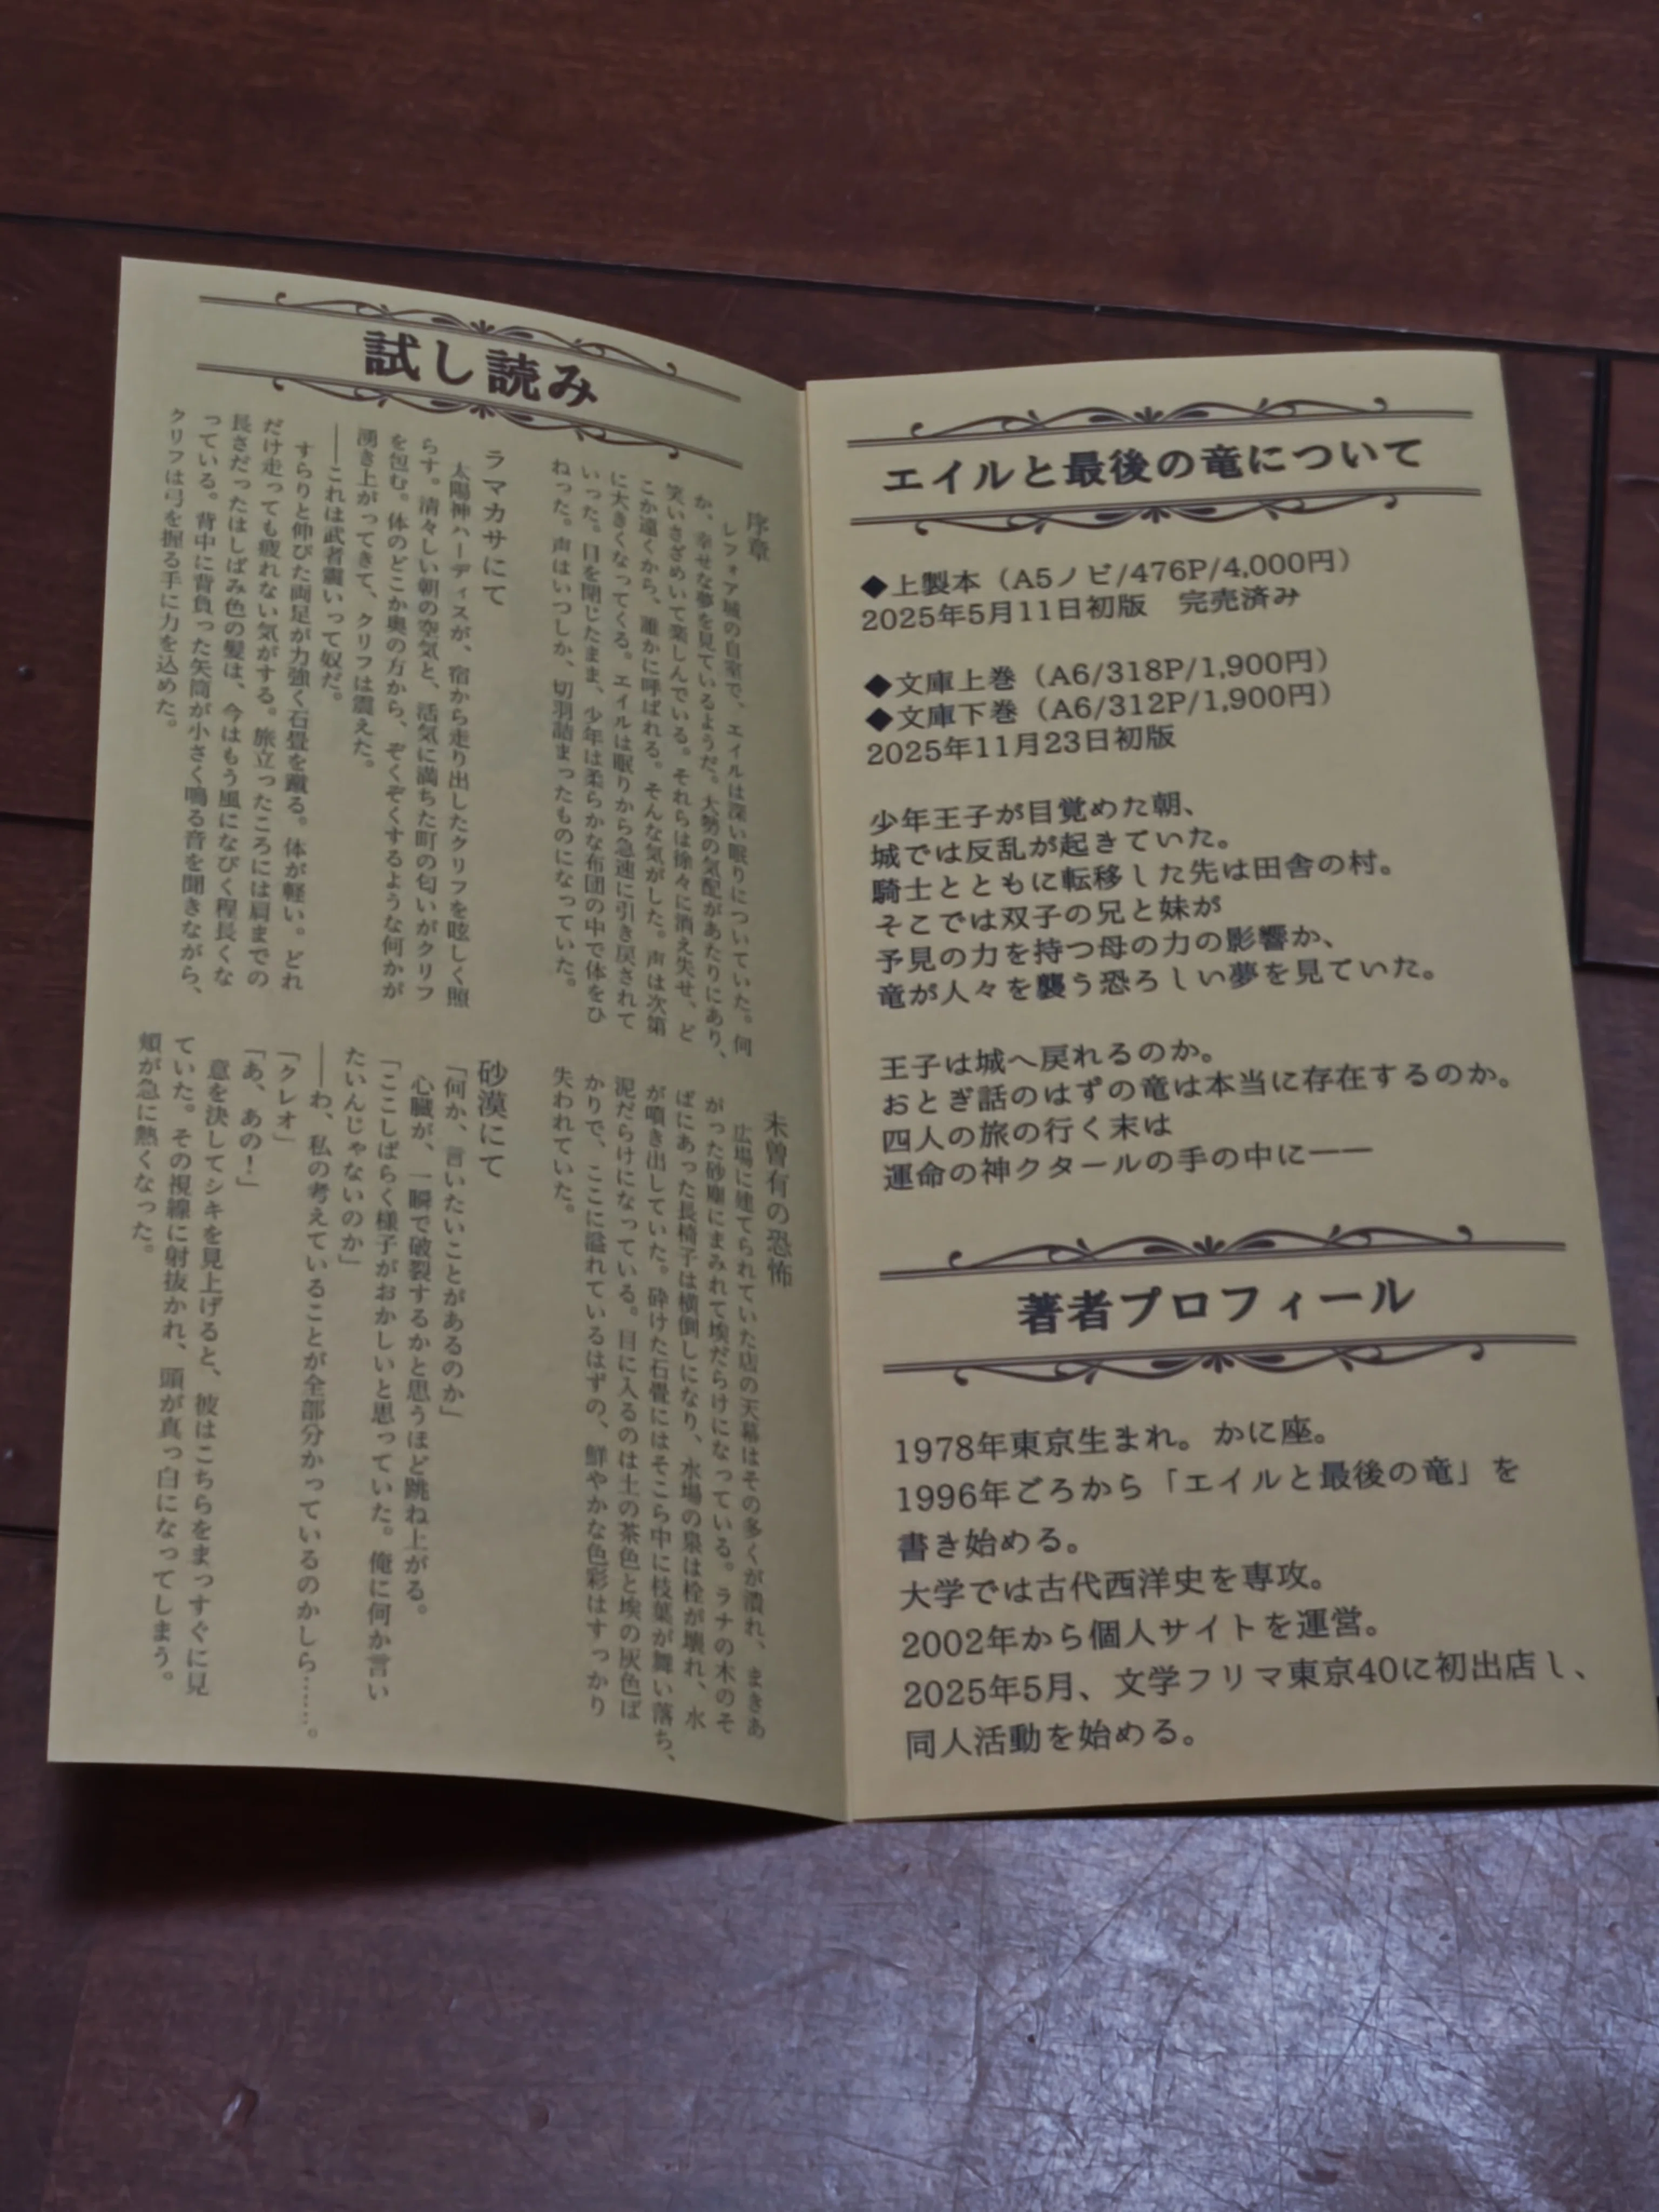 試し読み
序章
　レフォア城の自室で、エイルは深い眠りについていた。何
か、幸せな夢を見ているようだ。大勢の気配があたりにあり、
笑いさざめいて楽しんでいる。それらは徐々に消え失せ、ど
こか遠くから、誰かに呼ばれる。そんな気がした。声は次第
に大きくなってくる。エイルは眠りから急速に引き戻されて
いった。目を閉じたまま、少年は柔らかな布団の中で体をひ
ねった。声はいつしか、切羽詰まったものになっていた。
ラマカサにて
　太陽神ハーディスが、宿から走り出したクリフを眩しく照
らす。清々しい朝の空気と、活気に満ちた町の匂いがクリフ
を包む。体のどこか奥の方から、ぞくぞくするような何かが
湧き上がってきて、クリフは震えた。
――これは武者震いって奴だ。
　すらりと伸びた両足が力強く石畳を蹴る。体が軽い。どれ
だけ走っても疲れない気がする。旅立ったころには肩までの
長さだったはしばみ色の髪は、今はもう風になびく程長くな
っている。背中に背負った矢筒が小さく鳴る音を聞きながら、
クリフは弓を握る手に力を込めた。
未曽有の恐怖
　広場に建てられていた店の天幕はその多くが潰れ、まきあ
がった砂塵にまみれて埃だらけになっている。ラナの木のそ
ばにあった長椅子は横倒しになり、水場の泉は栓が壊れ、水
が噴き出していた。砕けた石畳にはそこら中に枝葉が舞い落ち、
泥だらけになっている。目に入るのは土の茶色と埃の灰色ば
かりで、ここに溢れているはずの、鮮やかな色彩はすっかり
失われていた。
砂漠にて
「何か、言いたいことがあるのか」
　心臓が、一瞬で破裂するかと思うほど跳ね上がる。
「ここしばらく様子がおかしいと思っていた。俺に何か言い
たいんじゃないのか」
――わ、私の考えていることが全部分かっているのかしら……。
「クレオ」
「あ、あの！」
　意を決してシキを見上げると、彼はこちらをまっすぐに見
ていた。その視線に射抜かれ、頭が真っ白になってしまう。
頬が急に熱くなった。
エイルと最後の竜について
◆上製本（A5ノビ/476P/4,000円）
2025年5月11日初版　完売済み
◆文庫上巻（A6/318P/1,900円）
◆文庫下巻（A6/312P/1,900円）
2025年11月23日初版
少年王子が目覚めた朝、
城では反乱が起きていた。
騎士とともに転移した先は田舎の村。
そこでは双子の兄と妹が
予見の力を持つ母の力の影響か、
竜が人々を襲う恐ろしい夢を見ていた。
王子は城へ戻れるのか。
おとぎ話のはずの竜は本当に存在するのか。
四人の旅の行く末は
運命の神クタールの手の中に――
著者プロフィール
1978年東京生まれ。かに座。
1996年ごろから「エイルと最後の竜」を
書き始める。
大学では古代西洋史を専攻。
2002年から個人サイトを運営。
2025年5月、文学フリマ東京40に初出店し、
同人活動を始める。